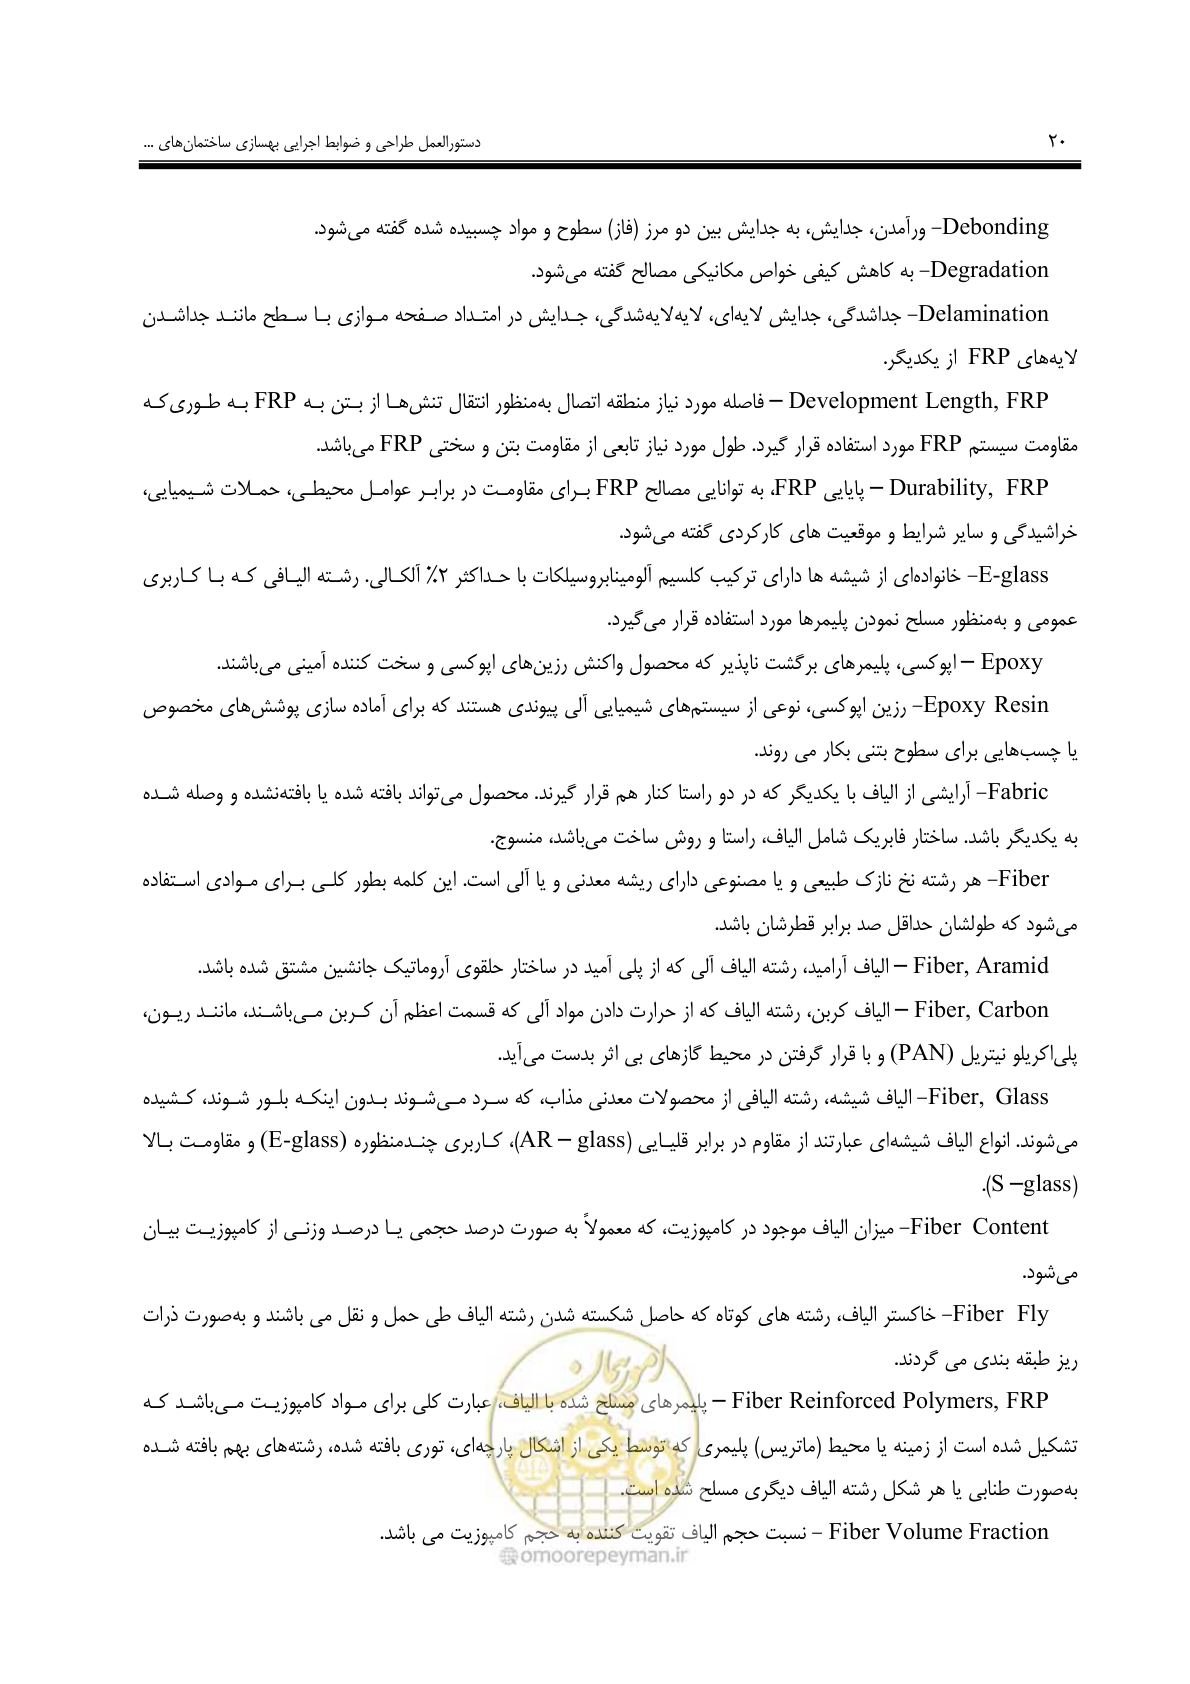 ۲۰ دستورالعمل طراحی و ضوابط اجرایی بهسازی ساختمان‌های ...
Debonding– ورآمدن، جدایش، به جدایش بین دو مرز (فاز) سطوح و مواد چسبیده شده گفته می‌شود.
Degradation– به کاهش کیفی خواص مکانیکی مصالح گفته می‌شود.
Delamination– جداشدگی، جدایش لایه‌ای، لایه‌لایه‌شدگی، جدایش در امتداد صفحه موازی با سطح مانند جداشدن
لایه‌های FRP از یکدیگر.
Development Length, FRP – فاصله مورد نیاز منطقه اتصال به‌منظور انتقال تنش‌ها از بتن به FRP به طوری‌که
مقاومت سیستم FRP مورد استفاده قرار گیرد. طول مورد نیاز تابعی از مقاومت بتن و سختی FRP می‌باشد.
Durability, FRP – پایایی FRP، به توانایی مصالح FRP برای مقاومت در برابر عوامل محیطی، حملات شیمیایی،
خراشیدگی و سایر شرایط و موقعیت های کارکردی گفته می‌شود.
E-glass– خانواده‌ای از شیشه ها دارای ترکیب کلسیم آلومینابروسیلکات با حداکثر ۲٪ آلکالی. رشته الیافی که با کاربری
عمومی و به‌منظور مسلح نمودن پلیمرها مورد استفاده قرار می‌گیرد.
Epoxy – اپوکسی، پلیمرهای برگشت ناپذیر که محصول واکنش رزین‌های اپوکسی و سخت کننده آمینی می‌باشند.
Epoxy Resin– رزین اپوکسی، نوعی از سیستم‌های شیمیایی آلی پیوندی هستند که برای آماده سازی پوشش‌های مخصوص
یا چسب‌هایی برای سطوح بتنی بکار می روند.
Fabric– آرایشی از الیاف با یکدیگر که در دو راستا کنار هم قرار گیرند. محصول می‌تواند بافته شده یا بافته‌نشده و وصله شده
به یکدیگر باشد. ساختار فابریک شامل الیاف، راستا و روش ساخت می‌باشد، منسوج.
Fiber– هر رشته نخ نازک طبیعی و یا مصنوعی دارای ریشه معدنی و یا آلی است. این کلمه بطور کلی برای موادی استفاده
می‌شود که طولشان حداقل صد برابر قطرشان باشد.
Fiber, Aramid – الیاف آرامید، رشته الیاف آلی که از پلی آمید در ساختار حلقوی آروماتیک جانشین مشتق شده باشد.
Fiber, Carbon – الیاف کربن، رشته الیاف که از حرارت دادن مواد آلی که قسمت اعظم آن کربن می‌باشند، مانند ریون،
پلی‌اکریلو نیتریل (PAN) و با قرار گرفتن در محیط گازهای بی اثر بدست می‌آید.
Fiber, Glass– الیاف شیشه، رشته الیافی از محصولات معدنی مذاب، که سرد می‌شوند بدون اینکه بلور شوند، کشیده
می‌شوند. انواع الیاف شیشه‌ای عبارتند از مقاوم در برابر قلیایی (AR – glass)، کاربری چندمنظوره (E-glass) و مقاومت بالا
(S –glass).
Fiber Content– میزان الیاف موجود در کامپوزیت، که معمولاً به صورت درصد حجمی یا درصد وزنی از کامپوزیت بیان
می‌شود.
Fiber Fly– خاکستر الیاف، رشته های کوتاه که حاصل شکسته شدن رشته الیاف طی حمل و نقل می باشند و به‌صورت ذرات
ریز طبقه بندی می گردند.
Fiber Reinforced Polymers, FRP – پلیمرهای مسلح شده با الیاف، عبارت کلی برای مواد کامپوزیت می‌باشد که
تشکیل شده است از زمینه یا محیط (ماتریس) پلیمری که توسط یکی از اشکال پارچه‌ای، توری بافته شده، رشته‌های بهم بافته شده
به‌صورت طنابی یا هر شکل رشته الیاف دیگری مسلح شده است.
Fiber Volume Fraction – نسبت حجم الیاف تقویت کننده به حجم کامپوزیت می باشد.
امور پیمان
@omoorepeyman.ir